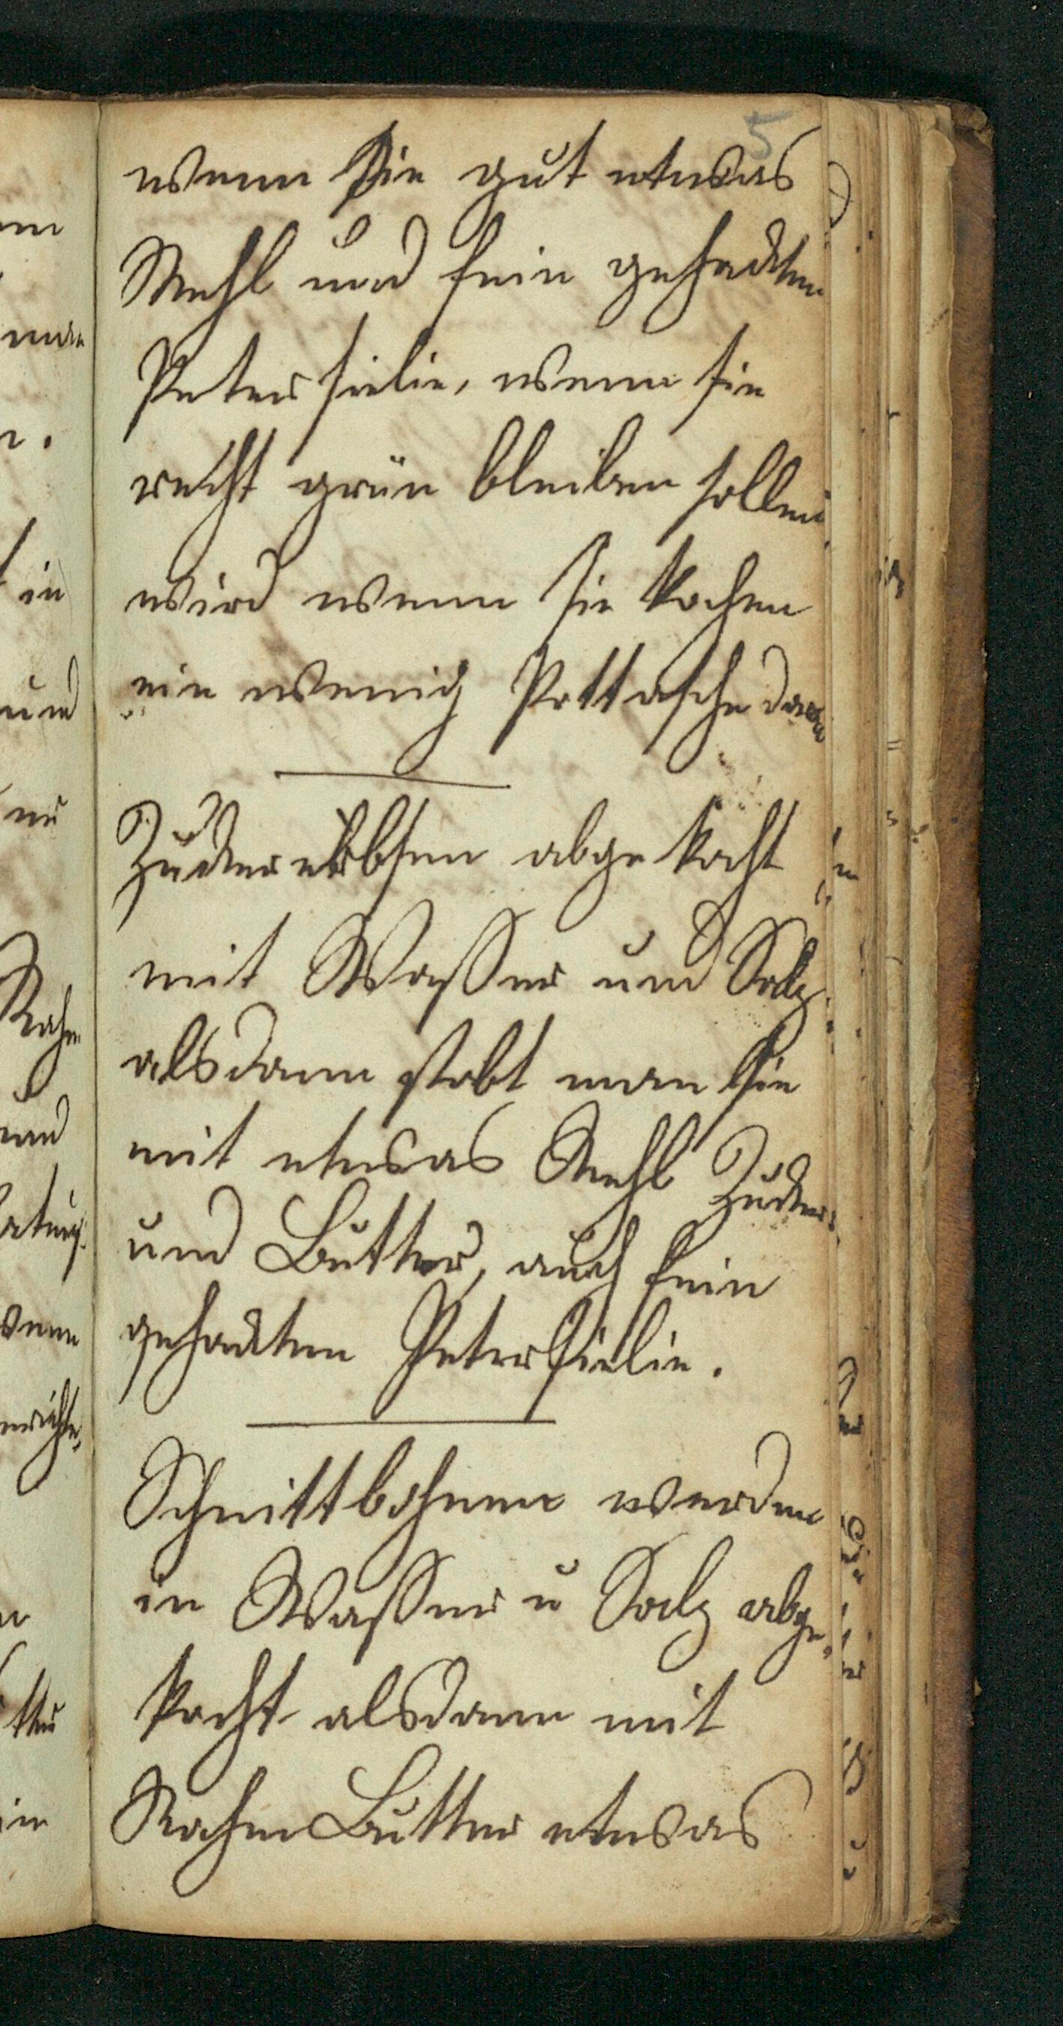 5
wenn sie gut etwas
Mehl und fein gehackten
Petersielie, wenn sie
recht grün bleiben sollen
wird wenn sie kochen
ein wenig Pottasche dazu
Zuckererbsen abgekocht
mit Wasser und Salz
alsdann stobt man sie
mit etwas Mehl Zucker
und Butter, auch fein
gehackten Petersielie.
Schnittbohnen werden
in Wasser u Salz abge-
kocht alsdann mit
Rahm Butter etwas